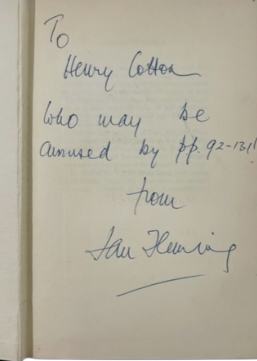 To
Henry Cotton
who may be
amused by pp. 92-131!
from
Ian Fleming